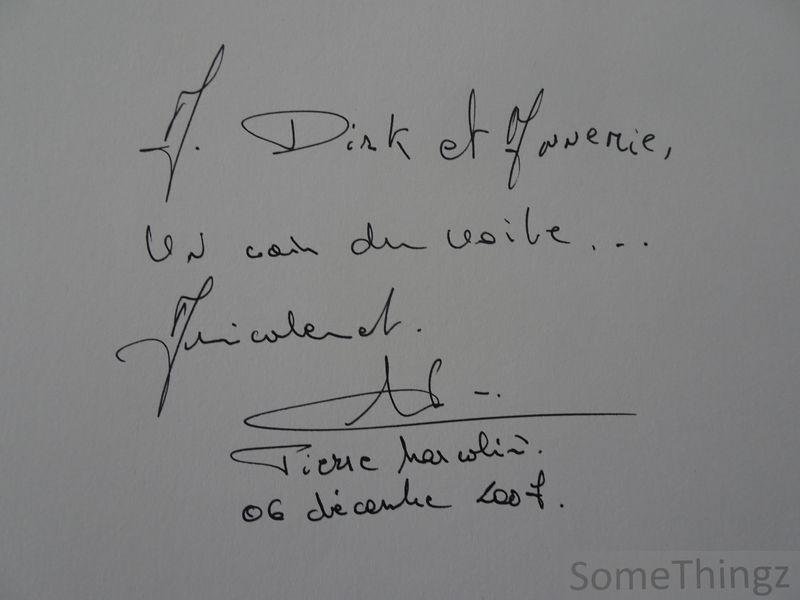 A. Dirk et Annemie,
Un coin du voile...
Amicalement.
Pierre Marcolini.
06 décembre 2007.
SomeThingz